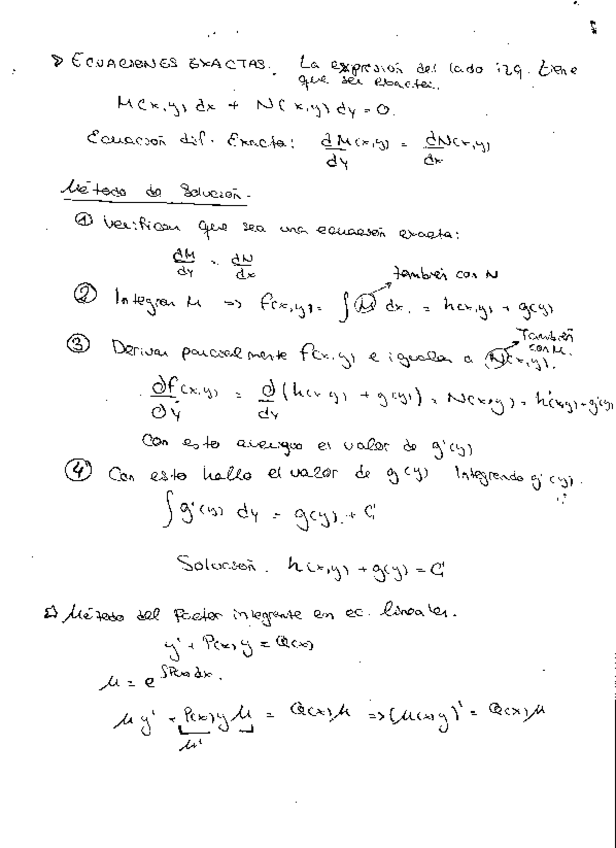 ECUACIONES EXACTAS. La expresión del lado izq. tiene
que ser exacta.
M(x,y) dx + N(x,y) dy = 0.
Ecuación dif. Exacta: dM(x,y)/dy = dN(x,y)/dx
Método de Solución.
① Verifican que sea una ecuación exacta:
dM/dy = dN/dx
también con N
② Integran M => f(x,y) = ∫ M dx. = h(x,y) + g(y)
También
con M.
③ Derivar parcialmente f(x,y) e igualar a N(x,y).
∂f(x,y)/∂y = ∂/dy (h(x,y) + g(y)) = N(x,y) = h'(x,y) + g'(y)
Con esto averiguo el valor de g'(y)
④ Con esto hallo el valor de g(y) Integrando g'(y).
∫ g'(y) dy = g(y) + C
Solución. h(x,y) + g(y) = C
Método del factor integrante en ec. lineales.
y' + P(x) y = Q(x)
μ = e^∫P(x)dx.
μ y' + P(x) y μ = Q(x) μ => (μ(x) y)' = Q(x) μ
μ'